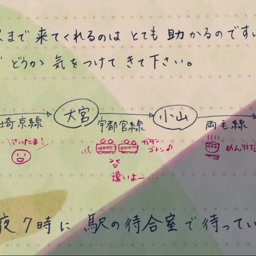 まで来てくれるのは とても 助かるのですが
どうか 気をつけて きて下さい。
埼京線 大宮 宇都宮線 小山 両毛線
さいたま! ガタンゴトン♪
遠いよー……
夜7時に 駅の待合室で待ってい